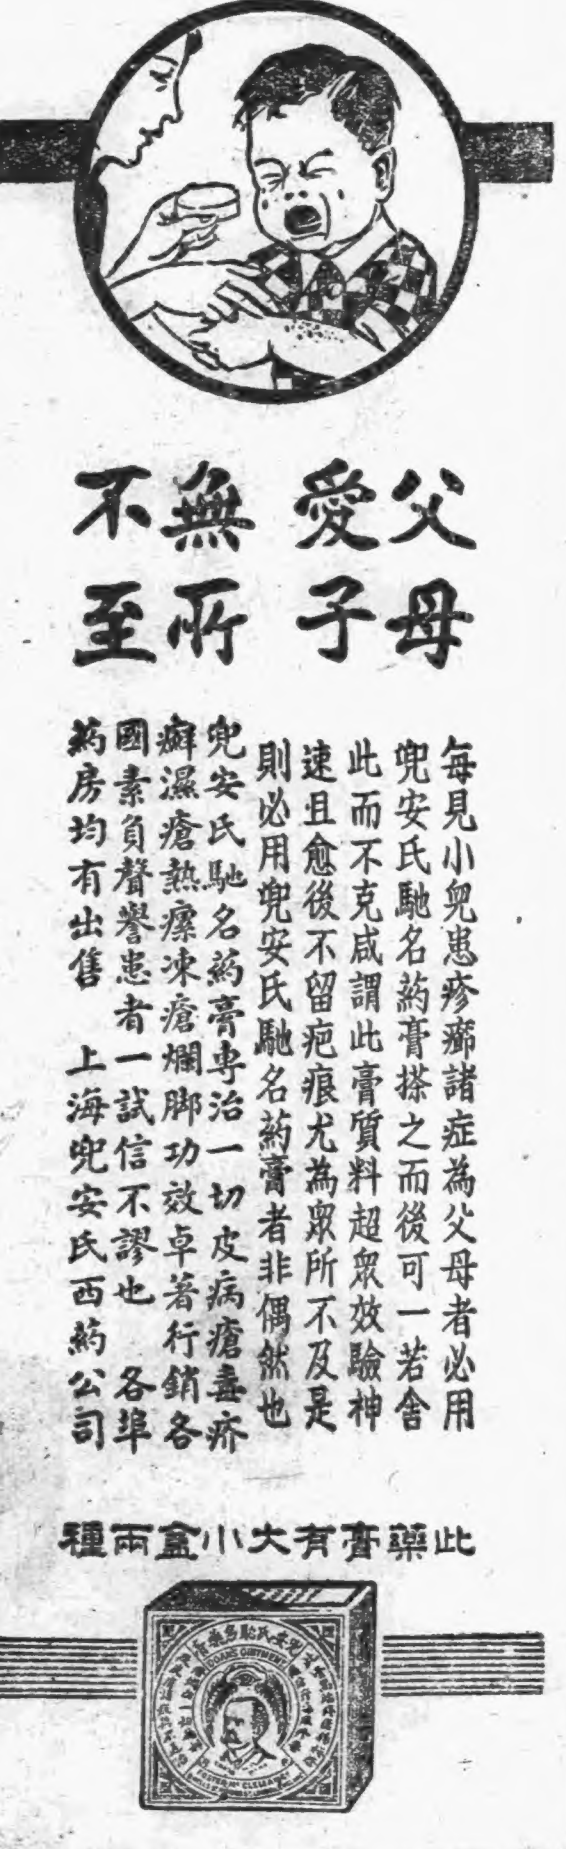 父母
愛子
無所
不至
每見小兒患疹癤諸症為父母者必用
兜安氏馳名葯膏搽之而後可一若舍
此而不克咸謂此膏質料超眾效驗神
速且愈後不留疤痕尤為眾所不及是
則必用兜安氏馳名葯膏者非偶然也
兜安氏馳名葯膏專治一切皮病瘡毒疥
癬濕瘡熱瘰凍瘡爛脚功效卓著行銷各
國素負聲譽患者一試信不謬也 各埠
葯房均有出售 上海兜安氏西葯公司
此藥膏有大小盒兩種
兜安氏馳名藥膏
DOAN'S OINTMENT
FOSTER-McCLELLAN